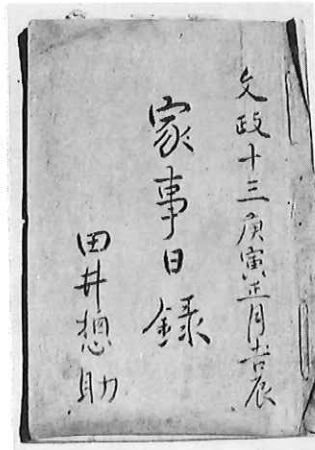 文政十三庚寅正月吉辰
家事日録
田井想助